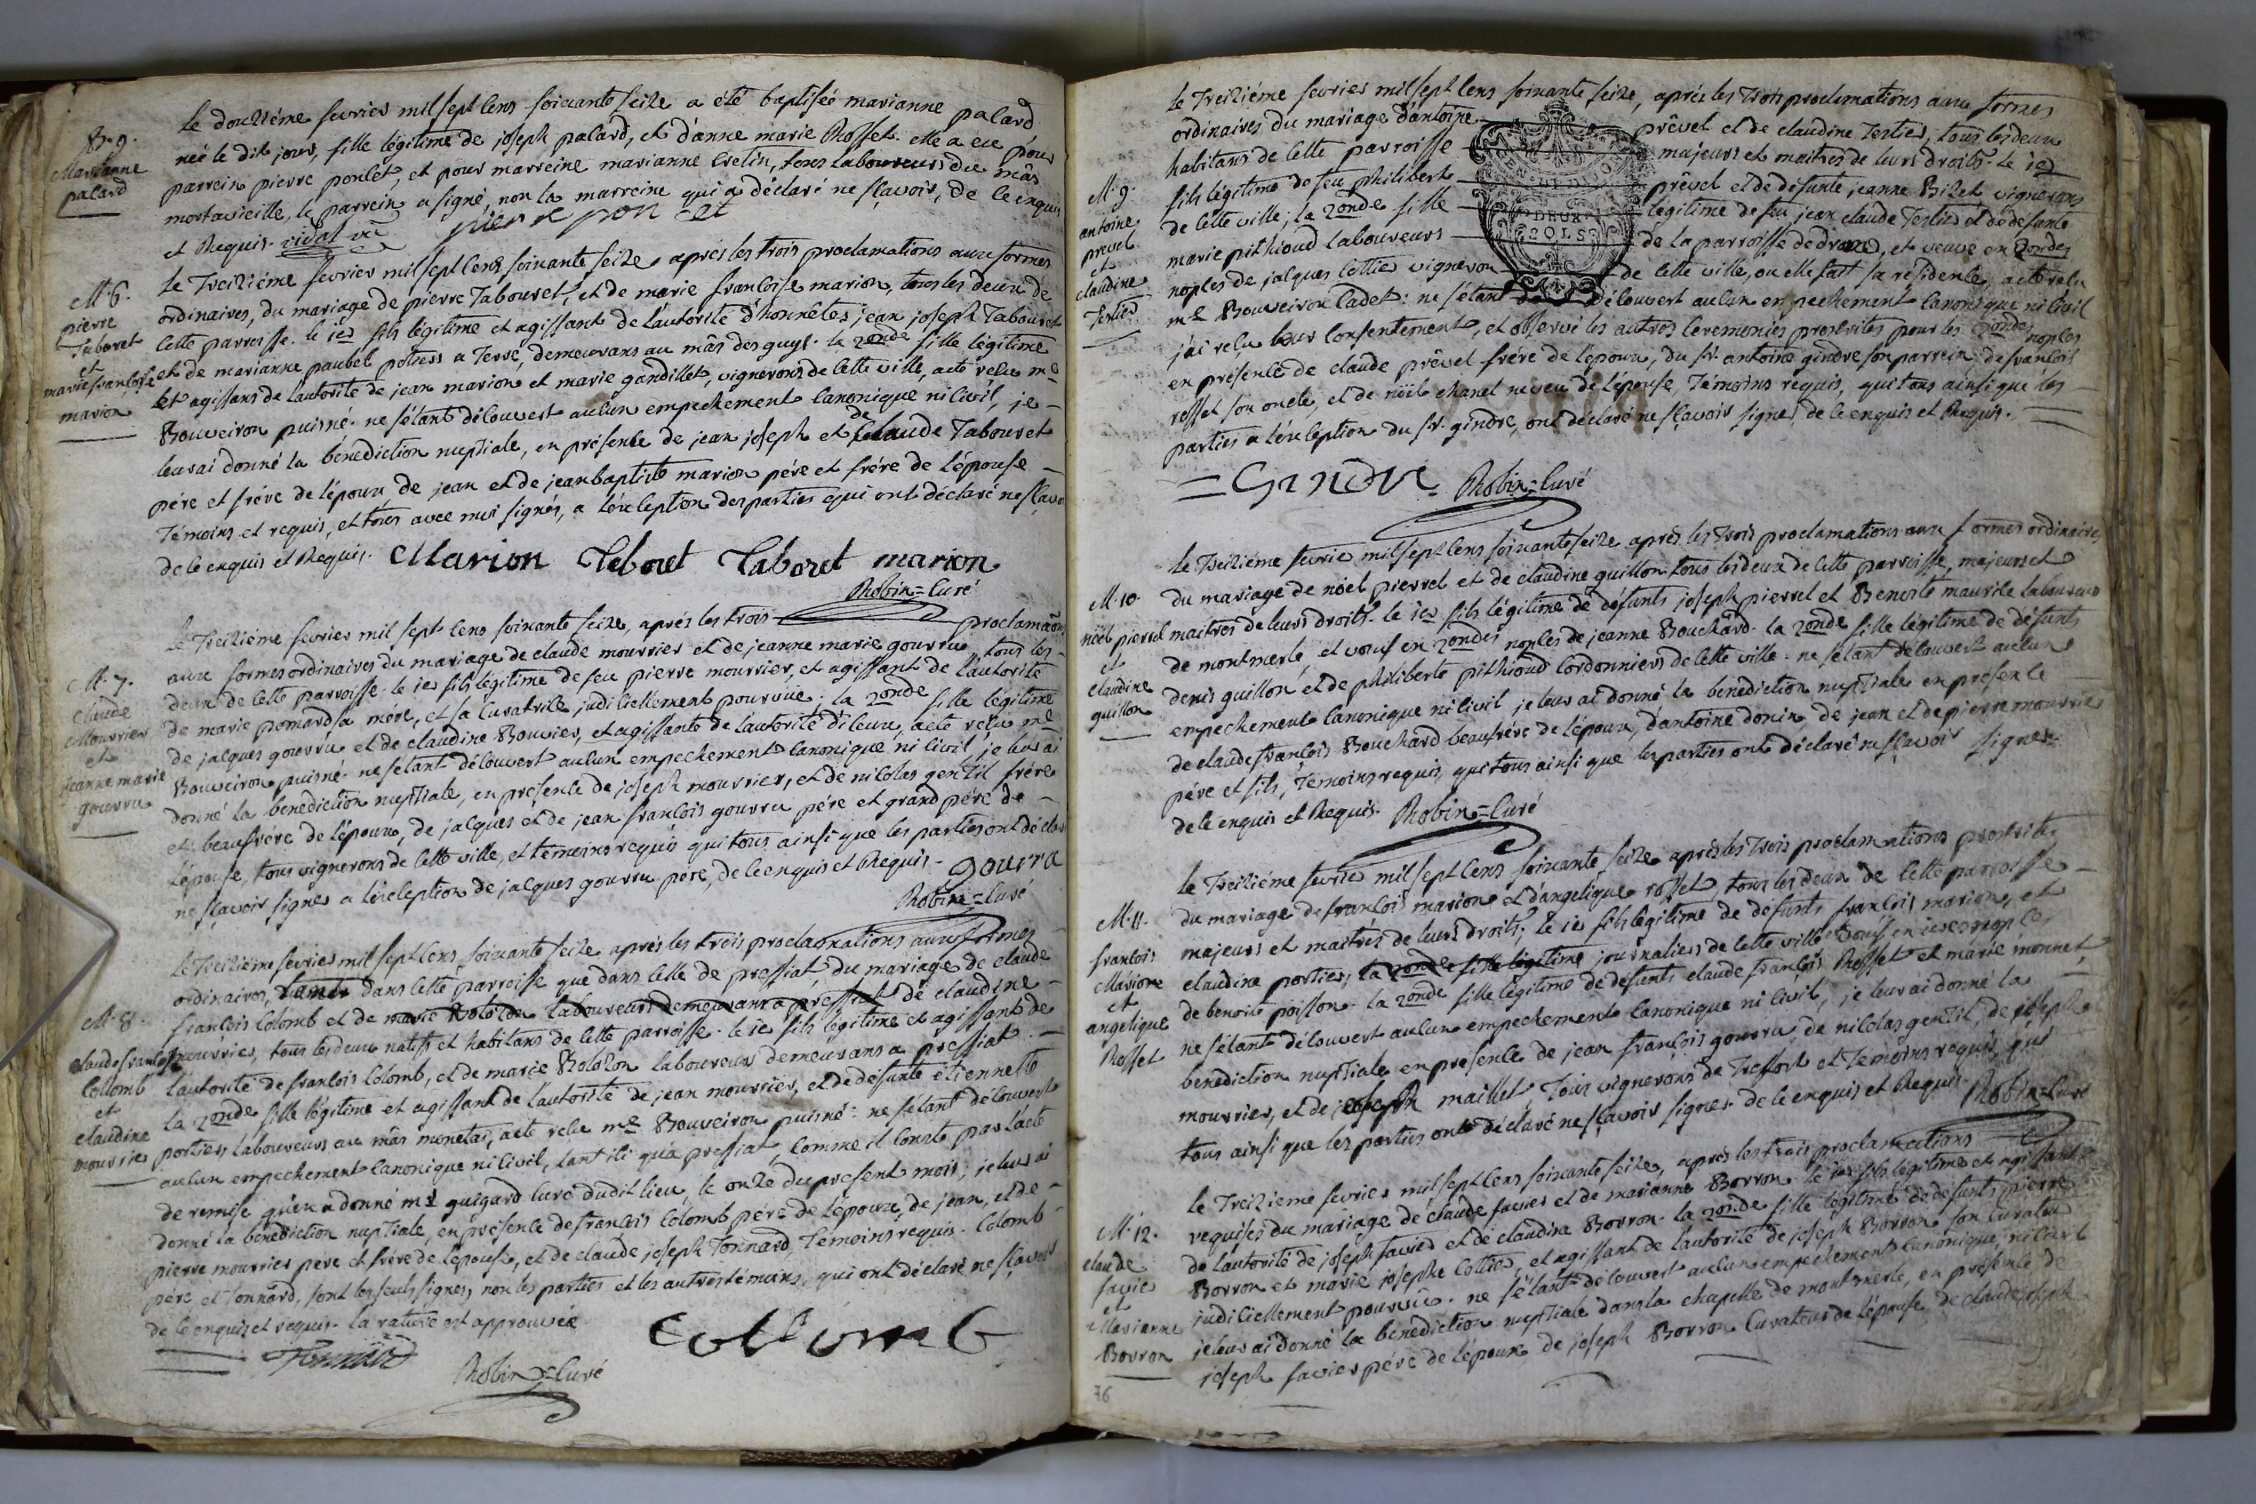 Bt. 9.
Marianne
palard
le douzième fevrier mil sept cens soixante seize a été baptisée marianne palard
née le dit jour, fille légitime de joseph palard, et d'anne marie Rosset. elle a eu pour
parrein pierre poncet, et pour marreine marianne cretin, tous laboureurs du mas
mortavieille, le parrein a signé, non la marreine qui a déclaré ne sçavoir, de ce enquis
et Requis. vidal vic pierre poncet
M. 6.
pierre
Tabouret
et
marie françoise
marion
le Treizième fevrier mil sept cens soixante seize, après les trois proclamations aux formes
ordinaires, du mariage de pierre Tabouret, et de marie françoise marion, tous les deux de
cette parroisse. le 1er fils légitime et agissant de l'autorité d'honnêtes jean joseph Tabouret
et de marianne paubel potiers a Terre, demeurans au mas des guys. la 2onde fille légitime
et agissans de l'autorité de jean marion et marie gandillet, vignerons de cette ville, acte reçu me
Bouveiron puisné. ne s'étant découvert aucun empechement canonique ni civil, je
leur ai donné la bénédiction nuptiale, en présence de jean joseph et de claude Tabouret
père et frère de l'époux de jean et de jean baptiste marion père et frère de l'épouse
Témoins et requis, et tous avec moi signés, a l'éxception des parties qui ont déclaré ne sçavoir
de ce enquis et Requis. Marion Teboret Taboret marion
Robin = Curé
M. 7.
Claude
Mourrier
et
jeanne marie
gouvru
le Treizième fevrier mil sept cens soixante seize, après les trois proclamaôns
aux formes ordinaires du mariage de claude mourrier et de jeanne marie gouvru, tous les
deux de cette parroisse. le 1er fils légitime de feu pierre mourrier, et agissant de l'autorité
de marie ponard sa mère, et sa curatrice judiciellement pourvue. la 2onde fille légitime
de jacques gouvru et de claudine Bouvier, et agissante de l'autorité d'iceux, acte reçu me
Bouveiron puisné. ne s'étant découvert aucun empechement canonique ni civil, je leur ai
donné la benediction nuptiale, en présence de joseph mourrier, et de nicolas gentil frère
et beaufrère de l'époux, de jacques et de jean françois gouvru père et grand père de
l'épouse, tous vignerons de cette ville, et temoins requis qui tous ainsi que les parties ont déclaré
ne sçavoir signer a l'éxception de jacques gouvru père, de ce enquis et Requis. gouvra
Robin = Curé
M. 8.
claude françois
Collomb
et
claudine
mourrier
le Treizième fevrier mil sept cens soixante seize après les trois proclamations aux formes
ordinaires, tant dans cette parroisse que dans celle de pressiat, du mariage de claude
françois Colomb et de marie Bolozon laboureurs demeurans a pressiat de claudine
mourrier, tous les deux natifs et habitans de cette parroisse. le 1er fils légitime et agissant de
l'autorité de françois Colomb, et de marie Bolozon laboureurs demeurans a pressiat
la 2onde fille légitime et agissant de l'autorité de jean mourrier, et de défunte étiennette
portier, laboureurs au mas monetay, acte reçu me Bouveiron puisné. ne s'étant découvert
aucun empechement canonique ni civil, tant ici qu'a pressiat, comme il conste par l'acte
de remise qu'en a donné mr guigard curé dudit lieu, le onze du present mois, je leur ai
donné la bénédiction nuptiale, en présence de françois Colomb père de l'époux, de jean, et de
pierre mourrier père et frère de l'épouse, et de claude joseph Tonnard, Témoins requis. Colomb
père et Tonnard, sont les seuls signés, non les parties et les autres témoins, qui ont déclaré ne sçavoir
de ce enquis et requis. la rature est approuvée
Tonnard Robin = Curé Collomb
M. 9.
antoine
prevel
et
claudine
Tertier
le Treizième fevrier mil sept cens soixante seize, après les trois proclamations aux formes
ordinaires du mariage d'antoine prêvel et de claudine Tertier, tous les deux
habitans de cette parroisse majeurs et maitres de leurs droits. le 1er
fils légitime de feu philibert prêvel et de défunte jeanne Bizet vignerons
de cette ville, la 2onde fille légitime de feu jean claude Tertier et de défunte
marie pithioud laboureurs de la parroisse de drom, et veuve en 2ondes
noples de jacques cottier vigneron de cette ville, ou elle fait sa résidence, acte reçu
me Bouveiron Cadet: ne s'étant découvert aucun empechement canonique ni civil
j'ai reçu leur consentement, et observé les autres ceremonies prescrites pour les 2ondes noples
en présence de claude prêvel frère de l'époux, du sr. antoine gindre son parrein, de françois
resset son oncle, et de noël chanel neveu de l'épouse, Témoins requis, qui tous ainsi que les
parties a l'éxception du sr. gindre, ont déclaré ne sçavoir signer, de ce enquis et Requis.
DEUX
SOLS
= Gindre Robin = Curé
M. 10.
nöel pierrel
et
claudine
guillon
le Treizième fevrier mil sept cens soixante seize après les trois proclamations aux formes ordinaires
du mariage de nöel pierrel et de claudine guillon tous les deux de cette parroisse, majeurs et
maitres de leurs droits. le 1er fils légitime de défunts joseph pierrel et Benoite maurice laboureurs
de montmerle, et veuf en 2ondes noples de jeanne Bouchard. la 2onde fille légitime de défunts
denis guillon et de philiberte pithioud cordonniers de cette ville. ne s'étant découvert aucun
empechement canonique ni civil je leur ai donné la benediction nuptiale en présence
de claude françois Bouchard beaufrère de l'époux, d'antoine donin de jean et de pierre mourrier
père et fils, Témoins requis, qui tous ainsi que les parties ont déclaré ne sçavoir signer
de ce enquis et Requis. Robin = Curé
M. 11.
françois
Marion
et
angelique
Rosset
le Treizième fevrier mil sept cens soixante seize après les trois proclamations prescrites
du mariage de françois marion et d'angelique rosset, tous les deux de cette parroisse
majeurs et maitres de leurs droits; le 1er fils légitime de défunts françois marion, et
claudine portier, la 2onde fille légitime journaliers de cette ville veuf en 1eres nopces
de benoite poisson. la 2onde fille légitime de défunts claude françois Rosset et marie monnet,
ne s'étant découvert aucun empechement canonique ni civil, je leur ai donné la
benediction nuptiale en présence de jean françois gouvru, de nicolas gentil, de joseph
mourrier, et de joseph maillet, tous vignerons de Treffort et Temoins requis, qui
tous ainsi que les parties ont déclaré ne sçavoir signer de ce enquis et Requis. Robin = Curé
M. 12.
claude
favier
et
Marianne
Borron
le Treizieme fevrier mil sept cens soixante seize, après les trois proclamations
requises du mariage de claude favier et de marianne Borron le 1er fils légitime et agissant
de l'autorité de joseph favier et de claudine Borron. la 2onde fille légitime de défunts pierre
Borron et marie josephe Cottier, et agissant de l'autorité de joseph Borron son curateur
judiciellement pourvuë. ne s'étant découvert aucun empechement canonique ni civil
je leur ai donné la bénédiction nuptiale dans la chapelle de montmerle, en présence de
joseph favier père de l'époux de joseph Borron Curateur de l'épouse, de claude joseph
76